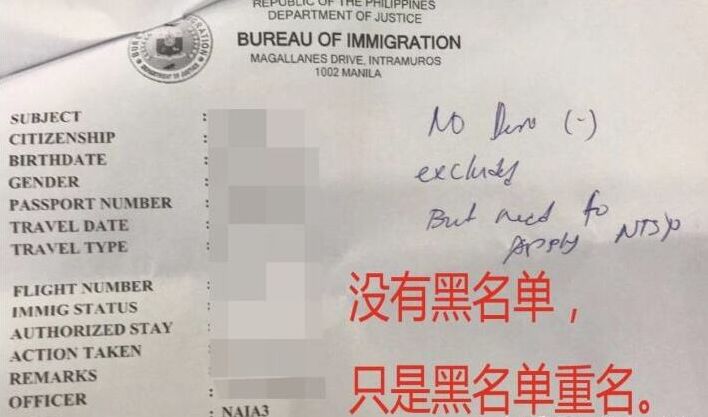 REPUBLIC OF THE PHILIPPINES
DEPARTMENT OF JUSTICE
BUREAU OF IMMIGRATION
MAGALLANES DRIVE, INTRAMUROS
1002 MANILA
SUBJECT :
CITIZENSHIP :
BIRTHDATE :
GENDER :
PASSPORT NUMBER :
TRAVEL DATE :
TRAVEL TYPE :
FLIGHT NUMBER :
IMMIG STATUS :
AUTHORIZED STAY :
ACTION TAKEN :
REMARKS :
OFFICER :
: NAIA3
No (-)
But need to
Apply NTSP
没有黑名单，
只是黑名单重名。